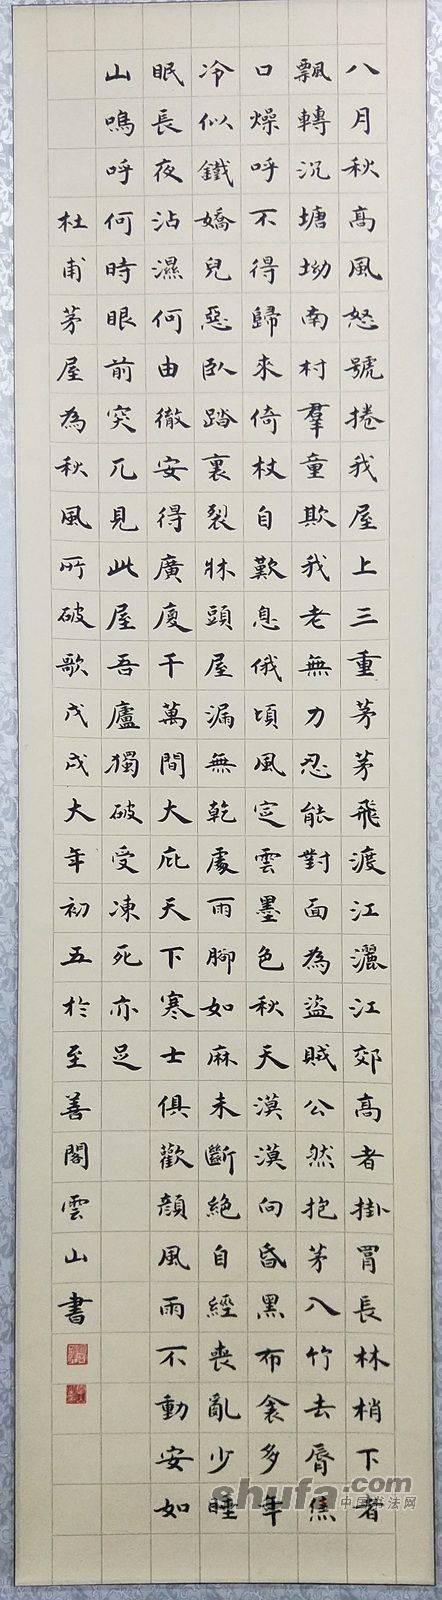 八月秋高風怒號捲我屋上三重茅茅飛渡江灑江郊高者掛罥長林梢下者
飄轉沉塘坳南村羣童欺我老無力忍能對面為盜賊公然抱茅入竹去脣焦
口燥呼不得歸來倚杖自歎息俄頃風定雲墨色秋天漠漠向昏黑布衾多年
冷似鐵嬌兒惡臥踏裏裂牀頭屋漏無乾處雨腳如麻未斷絕自經喪亂少睡
眠長夜沾濕何由徹安得廣廈千萬間大庇天下寒士俱歡顏風雨不動安如
山嗚呼何時眼前突兀見此屋吾廬獨破受凍死亦足
杜甫茅屋為秋風所破歌戊戌大年初五於至善閣雲山書
shufa.com
中国书法网